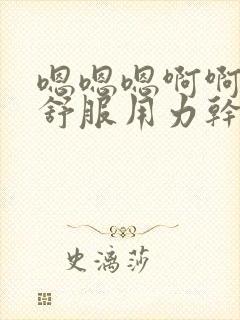 嗯嗯嗯啊啊
舒服用力幹
史漓莎